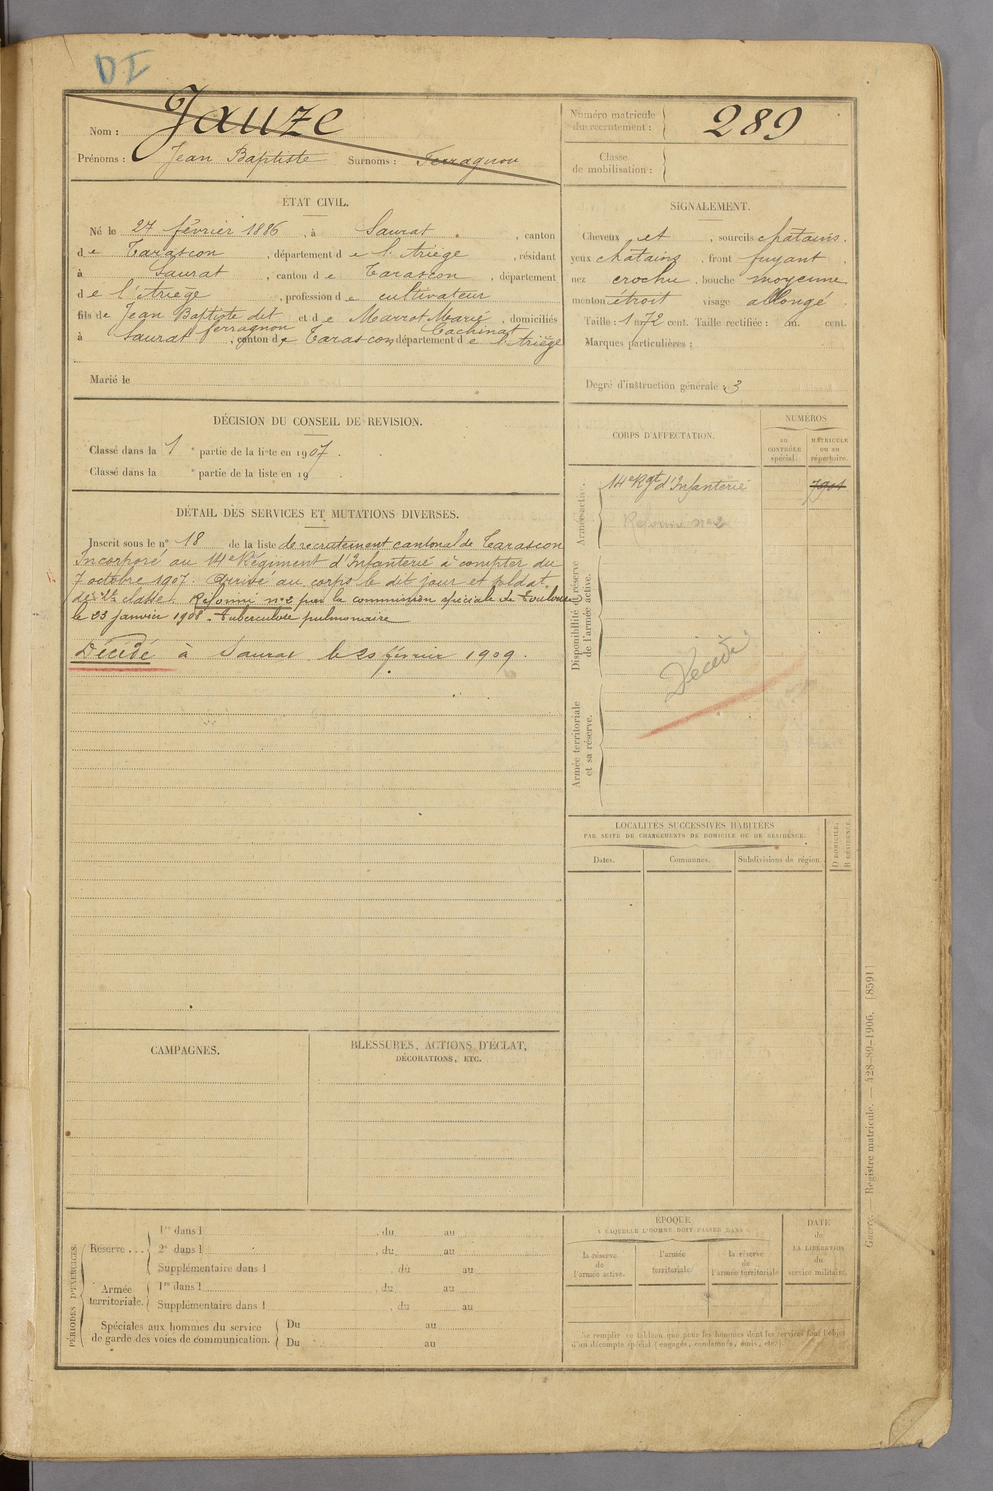 DI
Nom : Jauze
Prénoms : Jean Baptiste Surnoms : Ferragnon
Numéro matricule du recrutement : 289
Classe de mobilisation :
ÉTAT CIVIL.
Né le 27 février 1886, à Saurat, canton
de Tarascon, département de l'Ariège, résidant
à Saurat, canton de Tarascon, département
de l'Ariège, profession de cultivateur
fils de Jean Baptiste dit ferragnon et de Marrot Marie Cachinat, domiciliés
à Saurat, canton de Tarascon département de l'Ariège
Marié le
SIGNALEMENT.
Cheveux et, sourcils chatains.
yeux chatains, front fuyant
nez crochu, bouche moyenne
menton étroit visage allongé
Taille : 1 m 72 cent. Taille rectifiée : m. cent.
Marques particulières :
Degré d'instruction générale : 3
DÉCISION DU CONSEIL DE REVISION.
Classé dans la 1e partie de la liste en 1907.
Classé dans la e partie de la liste en 19
CORPS D'AFFECTATION.
NUMÉROS
AU CONTRÔLE spécial.
MATRICULE OU AU répertoire.
Armée active.
14e Rgt d'Infanterie
Réformé n°2
Disponibilité et réserve de l'armée active.
Décédé
Armée territoriale et sa réserve.
DÉTAIL DES SERVICES ET MUTATIONS DIVERSES.
Inscrit sous le n° 18 de la liste de recrutement cantonal de Tarascon
Incorporé au 14e Régiment d'Infanterie à compter du
7 octobre 1907. Arrivé au corps le dit jour et soldat
de 2e classe. Réformé n°2 par la commission spéciale de Toulouse
le 23 janvier 1908. Tuberculose pulmonaire
Décédé à Saurat le 20 février 1909.
LOCALITÉS SUCCESSIVES HABITÉES
PAR SUITE DE CHANGEMENTS DE DOMICILE OU DE RÉSIDENCE.
Dates. Communes. Subdivisions de région.
D DOMICILE.
R RÉSIDENCE.
CAMPAGNES.
BLESSURES, ACTIONS D'ÉCLAT,
DÉCORATIONS, ETC.
PÉRIODES D'EXERCICES.
Réserve ...
1re dans l du au
2e dans l du au
Supplémentaire dans l du au
Armée territoriale.
1re dans l du au
Supplémentaire dans l du au
Spéciales aux hommes du service
de garde des voies de communication.
Du au
Du au
ÉPOQUE
À LAQUELLE L'HOMME DOIT PASSER DANS
la réserve de l'armée active.
l'armée territoriale
la réserve de l'armée territoriale
DATE de LA LIBÉRATION du service militaire.
Ne remplir ce tableau que pour les hommes dont les services font l'objet
d'un décompte spécial (engagés, condamnés, omis, etc.).
Guerre. — Registre matricule. — 428-89-1906. [8591]